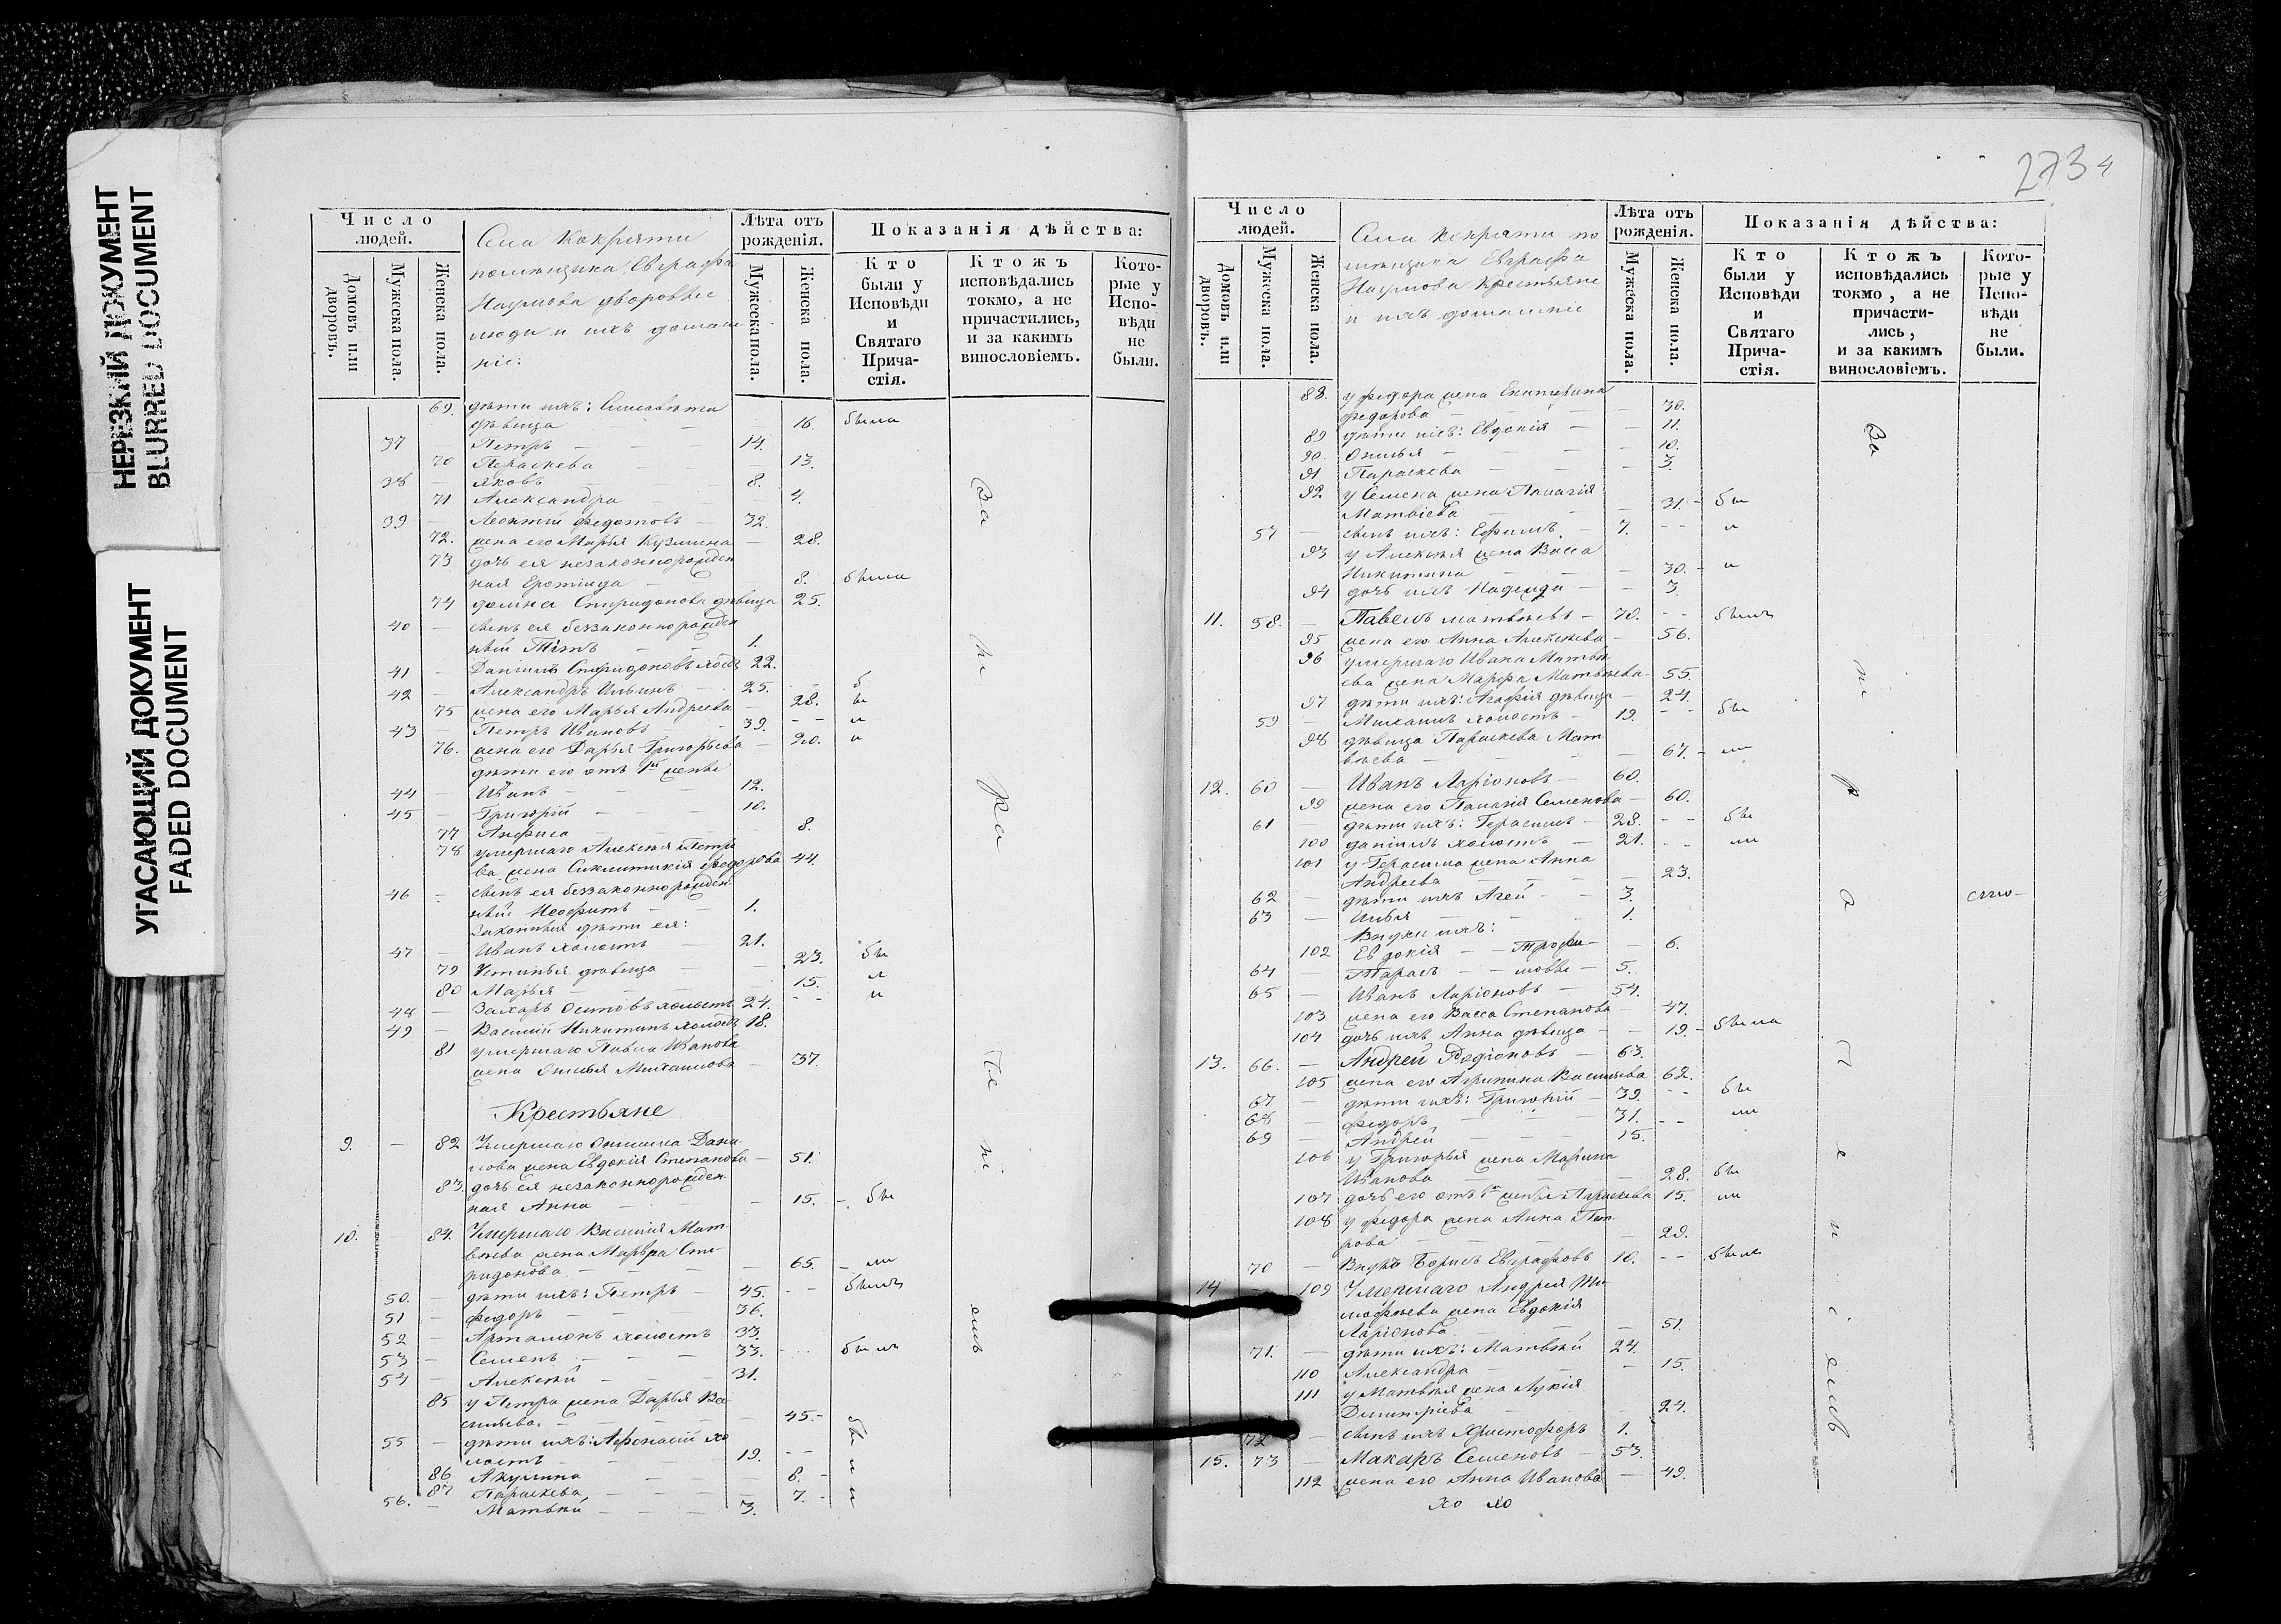 НЕРЕЗКИЙ ДОКУМЕНТ
BLURRED DOCUMENT
УГАСАЮЩИЙ ДОКУМЕНТ
FADED DOCUMENT
Число людей.
Домовъ или дворовъ.
Мужеска пола.
Женска пола.
Села Кокряти
помѣщика Евграфа
Наумова дворовые
люди и ихъ домаш
ніе:
Лѣта отъ рожденія.
Мужеска пола.
Женска пола.
Показанія дѣйства:
Кто были у Исповѣди и Святаго Прича-стія.
Ктожъ исповѣдались токмо, а не причастились, и за какимъ винословіемъ.
Кото-рые у Испо-вѣди не были.
69. дѣти ихъ: Елисавета
дѣвица — — 16. была
37 — Петръ — — 14.
70 Параскева — — 13.
38 — Яковъ — 8.
71 Александра — — 4.
39 — Леонтій Федотовъ — 32.
72. жена его Марья Кузмина — 28.
73 дочь ея незаконнорожден
ная Еротіида — 8. была
74 Спиридонова дѣвица 25.
40 — сынъ ея беззаконнорожден
ный Титъ — — 1.
41 — Даніилъ Спиридоновъ холос 22.
42 — Александръ Ильинъ — 25. - б
75 жена его Марья Андреева — 28. ы
43 — Петръ Ивановъ — 39. - - л
76. жена его Дарья Григорьева — 20. и
дѣти его отъ 1й жены
44 — Иванъ — — — 12.
45 — Григорій — — — 10.
77 Анфиса — — — 8.
78 умершаго Алексѣя Петро
ва жена Сиклитикія Федорова 44.
46 — сынъ ея беззаконнорожден
ный Неофитъ — — 1.
Законныя дѣти ея:
47 — Иванъ холостъ — 21.
79 Устинья дѣвица — — 23. бы
80 Марья — — — 15. л
48 — Захаръ Осиповъ холостъ 24. - - и
49 — Василій Никитинъ холос 18.
81 умершаго Павла Иванова
жена Михаилова — 37.
Крестьяне
9. — 82 Умершаго Дани
лова жена Евдокія Степанова — 51.
83. дочь ея незаконнорожден
ная Анна — — 15. - бы
10. — 84. Умершаго Василія Мат
вѣева жена Марфа Спи
ридонова — — — 65. - ли
50. — дѣти ихъ: Петръ — 45. - - былъ
51 — Федоръ — — 36.
52 — Артамонъ холостъ 33.
53 — Семенъ — — — 33. - - былъ
54 — Алексѣй — — — 31.
85 у Петра жена Дарья Ва
сильева. — — — 45. -
55 — дѣти ихъ: Афонасій хо
лостъ — — 19. - - бы
86 Акулина — — 8. - л
87 Параскева — — — 7. - и
56. — Матвѣй — — — 3.
За
ма
ра
не
ні
емъ
2734
Число людей.
Домовъ или дворовъ.
Мужеска пола.
Женска пола.
Села Кокряти по
мѣщика Евграфа
Наумова Крестьяне
и ихъ домашніе
Лѣта отъ рожденія.
Мужеска пола.
Женска пола.
Показанія дѣйства:
Кто были у Исповѣди и Святаго Прича-стія.
Ктожъ исповѣдались токмо, а не причасти-лись, и за какимъ винословіемъ.
Кото-рые у Испо-вѣди не были.
88. у Федора жена Екатерина
Федорова — — — 30.
89 дѣти ихъ: Евдокія — — 11.
90. — — — 10.
91 Параскева — — — 3.
92 у Семена жена Палагія
Матвіева — — — 31. - бы
57 — сынъ ихъ: Ефимъ — 7. - - л
93 у Алексѣя жена Васса
Никитина — — — 30. - и
94 дочь ихъ Надежда — — 3.
11. 58. — Павелъ Матвѣевъ — 70. - - былъ
95 жена его Анна Алексѣева — 56.
96 умершаго Ивана Матвѣ
ева жена Марфа Матвѣева — 55.
97 дѣти ихъ: Агафія дѣвица — 24.
59 — Михаилъ холостъ — 19. - - бы
98 дѣвица Параскева Мат
вѣева — — — 67. - ли
12. 60 — Иванъ Ларіоновъ — 60.
99 жена его Палагія Семенова — 60.
61 — дѣти ихъ: Герасимъ — 28. - - бы
100 Даніилъ холостъ — 21. - - ли
101 у Герасима жена Анна
Андреева — — — 23.
62 — дѣти ихъ Агей — — 3.
63 — Илья — — — 1.
Внуки ихъ:
102 Евдокія — — Трофи — — 6.
64 — Тарасъ — — мовы — 5.
65 — Иванъ Ларіоновъ — 54.
103 жена его Васса Степанова — 47.
104 дочь ихъ Анна дѣвица — — 19. - была
13. 66. — Андрей Родіоновъ — 63.
105 жена его Агрипина Васильева 62.
67 — дѣти ихъ: Григорій — 39. - - бы
68 — Федоръ — — — 31. - - ли
69 — Андрей — — — 15.
106 у Григорья жена Марина
Иванова — — — 28. бы
107 дочь его отъ 1й жены Параскева 15. ли
108 у Федора жена Анна Пет
рова — — — 29.
70 — Внукъ Борисъ Евграфовъ 10. - - былъ
14 — 109 Умершаго Андрея Ти
мофѣева жена Евдокія
Ларіонова — — — 51.
71. — дѣти ихъ: Матвѣй 24.
110 Александра — — — 15.
111 у Матвѣя жена Лукія
Димитріева — — — 24.
72 — сынъ ихъ Христофоръ 1.
15. 73 — Макаръ Семеновъ — 53.
112 жена его Анна Иванова — 49.
За
не
р
а